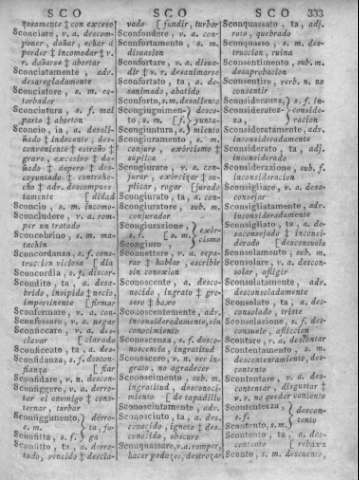 SCO SCO SCO 333
samente ‡ con exceso
Sconciare, v. a. descom-
poner, dañar, echar á
perder ‡ incomodar ‡ v.
r. dañarse ‡ abortar
Sconciatamente, adv.
desarregladamente
Sconciatore, s. m. es-
torbador
Sconciatura, s. f. mal
parto ‡ aborto
Sconcio, ia, a. desali-
ñado ‡ indecente, des-
conveniente ‡
grave, excesivo ‡
‡ descompuesta-
mente
Sconcio, s. m. incomo-
Scondudere, v. a. rom-
per un tratado
Sconcobrino, s. m. ma-
tachin
Sconcordanza, s. f. cons-
truccion viciosa [dia
Sconcordia, s. f. discor-
Scondito, ta, a. desa-
brido, insipido ‡ necio,
impertinente [firmar
Sconfermare, v. a. con-
Sconfessare, v. a. negar
Sconficcare, v. a. des-
clavar [clavado
Sconficcato, ta, a. des-
Sconfidanza, s. f. descon-
fianza [fiar
Sconfidare, v. n. descon-
Sconfiggere, v. a. derro-
tar el enemigo ‡ cons-
ternar, turbar
Sconfiggimento, derro-
s. m. ta, fu-
Sconfitta, s. f. ga
Sconfitto, ta, a. derro-
tado, vencido ‡ descla-
vado [fundir, turbar
Sconfondere, v. a. con-
Sconfortamento, s. m.
disuasion
Sconfortare, v. a. disua-
dir ‡ v. r. desanimarse
Sconfortato, ta, a. de-
sanimado, abatido
Sconforto, s.m. desaliento
Scongiugnimen- descon-
to, s. m. [f. junta-
Scongiuntura, s. miento
Scongiuramento, s. m.
conjuro, exôrcismo ‡
súplica
Scongiurare, v. a. con-
jurar, exôrcizar ‡ su-
plicar, rogar [jurado
Scongiurato, ta, a. con-
Scongiuratore, sub. m.
conjurador
Scongiurazione, exôr-
s. f. [s. m. cismo
Scongiuro,
Sconnettere, v. a. repa-
rar ‡ hablar, escribir
sin conexîon
Sconoscente, a. desco-
nocido, ingrato ‡ gro-
sero ‡ baxo
Sconoscentemente, adv.
desconsideradamente, sin
conocimiento
Sconoscenza, s. f. desco-
noscencia, ingratitud
Sconoscere, v. n. ser in-
grato, no agradecer
Sconoscimento, sub. m.
ingratitud, desconoci-
miento [de tapadillo
Sconosciutamente, adv.
Sconosciuto, ta, a. des-
conocido, ignoto ‡ des-
conocido, obscuro
Sconquassare, v. a. romper,
hacer pedazos, destrozar
Sconquassato, ta, adj.
roto, quebrado
Sconquasso, s. m. des-
truccion, ruina
Sconsentimento, sub. m.
desaprobacion
Sconsentire, verb. n. no
consentir
Sconsideranza, s. f. in-
Sconsideratez- conside-
za, racion
Sconsideratamente, adv.
inconsideradamente
Sconsiderato, ta, adj.
inconsiderado
Sconsiderazione, sub. f.
inconsideracion
Sconsigliare, v. a. desa-
consejar
Sconsigliatamente, adv.
inconsideradamente
Sconsigliato, ta, a. de-
saconsejado ‡ inconsi-
derado [desconsuelo
Sconsolamento, sub. m.
Sconsolare, v. a. descon-
solar, afligir
Sconsolatamente, adv.
desconsoladamente
Sconsolato, ta, a. des-
consolado, triste
Sconsolazione, s. f. des-
consuelo, afliccion
Scontare, v. a. descontar
Scontentamento, s. m.
descontentamiento, des-
contento
Scontentare, v. a. des-
contentar, disgustar ‡
v. r. no perder contento
Scontentezza, descon-
s. f. tento
Scontento, s. m.
Scontento, ta, a. des-
contento [rebaxa
Sconto, s. m. descuento,